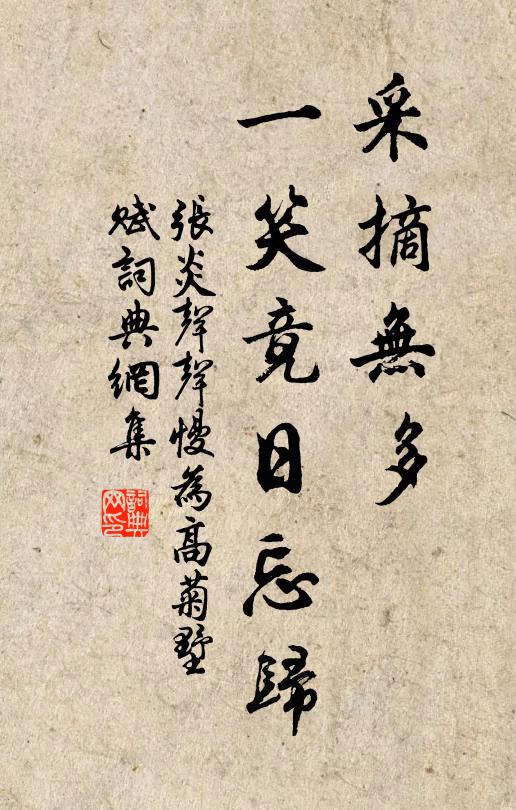 采摘無多
一笑竟日忘歸
張炎聲聲慢為高菊墅
賦詞典網集
詞典
网印